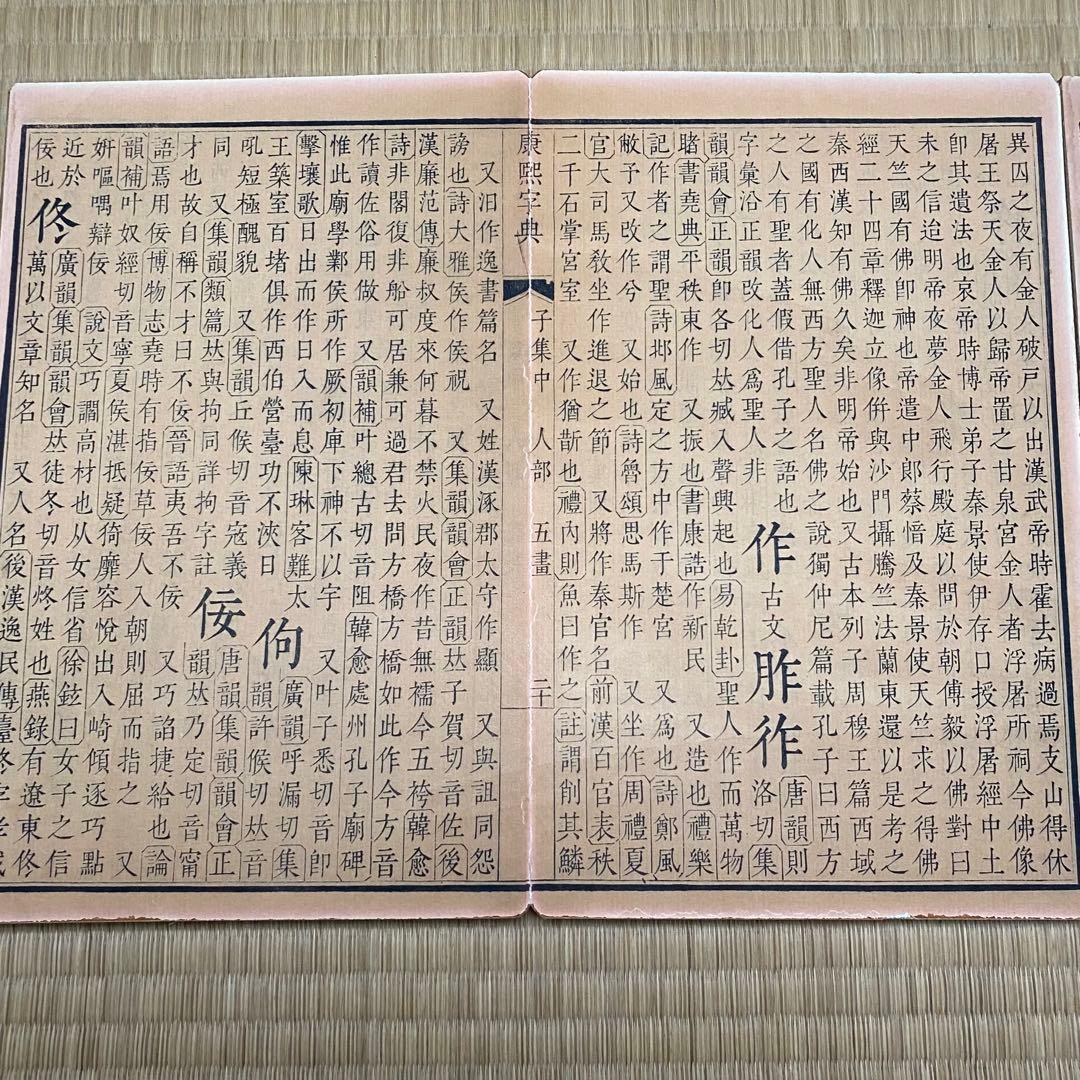 異囚之夜有金人破戸以出漢武帝時霍去病過焉支山得休
屠王祭天金人以歸帝置之甘泉宮金人者浮屠所祠今佛像
卽其遺法也哀帝時博士弟子秦景使伊存口授浮屠經中土
未之信迨明帝夜夢金人飛行殿庭以問於朝傅毅以佛對曰
天竺國有佛卽神也帝遣中郎蔡愔及秦景使天竺求之得佛
經二十四章釋迦立像倂與沙門攝騰竺法蘭東還以是考之
秦西漢知有佛久矣非明帝始也又古本列子周穆王篇西域
之國有化人無西方聖人名佛之說獨仲尼篇載孔子曰西方
之人有聖者蓋假借孔子之語也
字彙沿正韻改化人爲聖人非
作 古文 胙 𢓓 唐韻則洛切集
韻韻會正韻卽各切𠀤臧入聲興起也易乾卦聖人作而萬物
睹書堯典平秩東作 又振也書康誥作新民 又造也禮樂
記作者之謂聖詩邶風定之方中作于楚宮 又爲也詩鄭風
敝予又改作兮 又始也詩魯頌思馬斯作 又坐作周禮夏
官大司馬敎坐作進退之節 又將作秦官名前漢百官表秩
二千石掌宮室 又作猶斮也禮內則魚曰作之註謂削其鱗
康熙字典 子集中 人部 五畫 二十
又汨作逸書篇名 又姓漢涿郡太守作顯 又與詛同怨
謗也詩大雅侯作侯祝 又集韻韻會正韻𠀤子賀切音佐後
漢廉范傳廉叔度來何暮不禁火民夜作昔無襦今五袴韓愈
詩非閣復非船可居兼可過君去問方橋方橋如此作今方音
作讀佐俗用做 又韻補叶總古切音阻韓愈處州孔子廟碑
惟此廟學鄴侯所作厥初庫下神不以宇 又叶子悉切音卽
擊壤歌日出而作日入而息陳琳客難太
王築室百堵俱作西伯營臺功不浹日
佝 廣韻呼漏切集
韻許候切𠀤音
吼短極醜貌 又集韻丘候切音寇義
同 又集韻類篇𠀤與拘同詳拘字註
佞 唐韻集韻韻會正
韻𠀤乃定切音甯
才也故自稱不才曰不佞晉語夷吾不佞 又巧諂捷給也論
語焉用佞博物志堯時有指佞草佞人入朝則屈而指之 又
韻補叶奴經切音寧夏侯湛抵疑倚靡容悅出入崎傾逐巧點
姸嘔喁辯佞 說文巧讇高材也从女信省徐鉉曰女子之信
近於
佞也
佟 廣韻集韻韻會𠀤徒冬切音炵姓也燕錄有遼東佟
萬以文章知名 又人名後漢逸民傳臺佟字